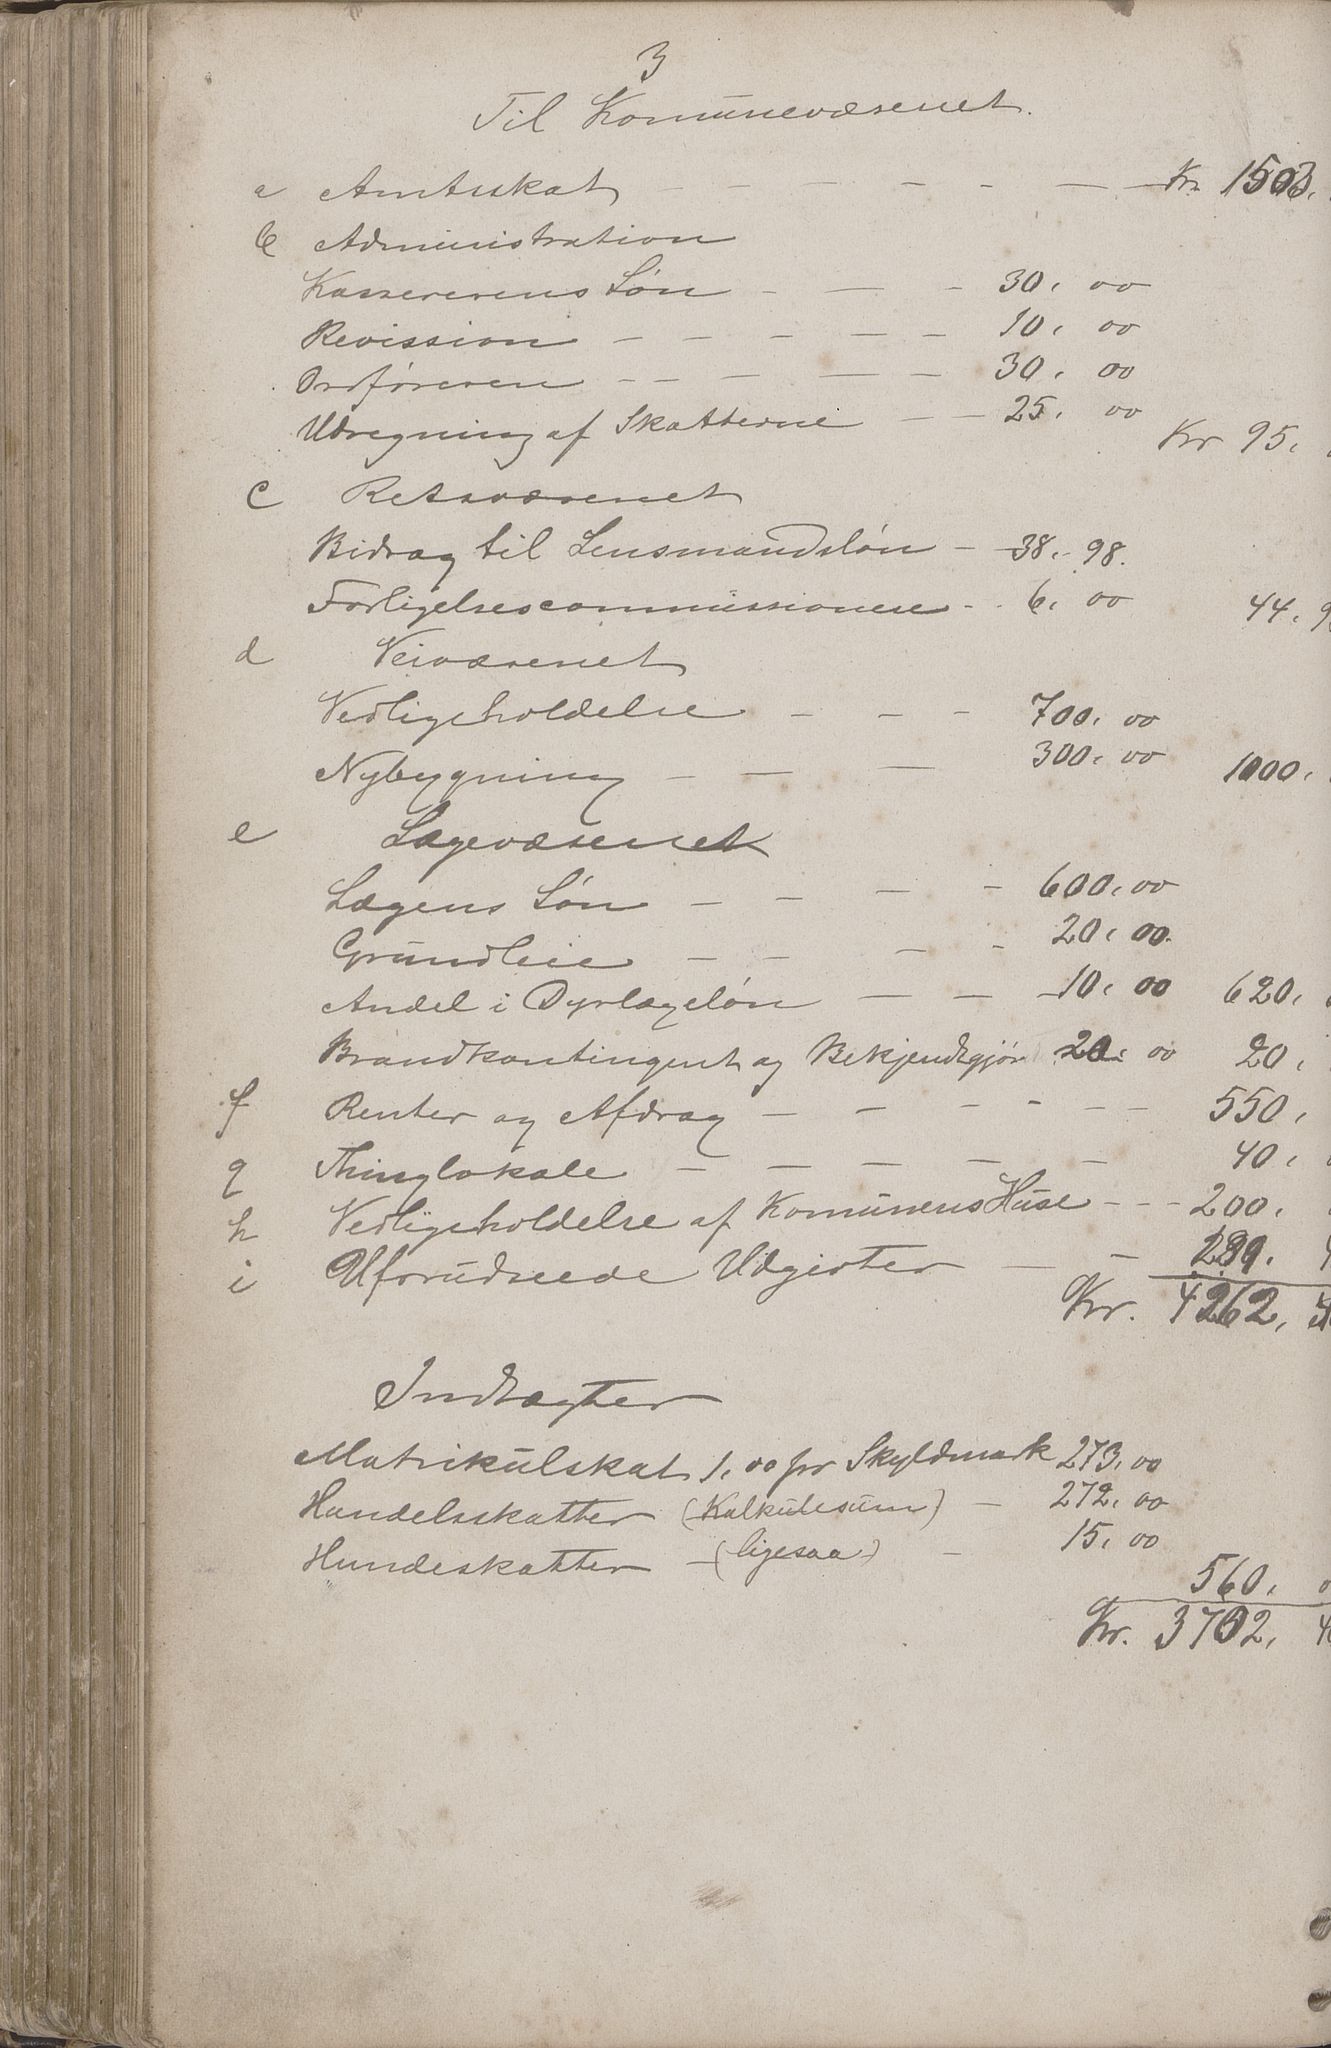 3
Til Komunevæsenet.
a Amtsskat - - - - - - - Kr. 1503.
b Administration
Kassererens Løn - - - 30. 00
Revission - - - - - - 10. 00
Ordføreren - - - - - 30. 00
Udregning af Skatterne - - 25. 00
Kr 95.
c Retsvæsenet
Bidrag til Lensmandsløn - 38. 98.
Forligelsescommissionere - - 6. 00 44. 9
d Veivæsenet
Vedligeholdelse - - - 700. 00
Nybygning - - - 300. 00 1000.
e Lægevæsenet
Lægens Løn - - - - 600. 00
Grundleie - - - - 20. 00.
Andel i Dyrlægeløn - - - 10. 00 620.
Brandkontingent og Bekjendtgjør 20. 00 20.
f Renter og Afdrag - - - - - - 550.
g Thinglokale - - - - - 40.
h Vedligeholdelse af Komunens Huse - - - 200.
i Uforudseede Udgivter - - 289. 4
Kr. 4262, 4
Indtægter
Matrikulskat 1. 00 pr Skyldmark 273. 00
Handelsskatter (Kalkulesum) - 272. 00
Hundeskatter - (ligesaa) - 15. 00
560. 0
Kr. 3702, 4